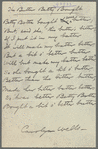 The Butter Betty Bought
Betty Botter bought some butter;
"But," said she, "this butter's bitter
If I put it in my batter
It will make my batter bitter.
But a bit of better butter
Will but make my batter better."
So she bought a bit of butter
Better than the bitter butter
Made her bitter batter better.
So 'twas better Betty Botter
Bought a bit of better butter.
Carolyn Wells.